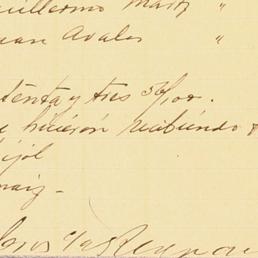 uillermo Martz "
uan Avalos "
tenta y tres 56/100.
e hicieron recibiendo
ijol
maiz -